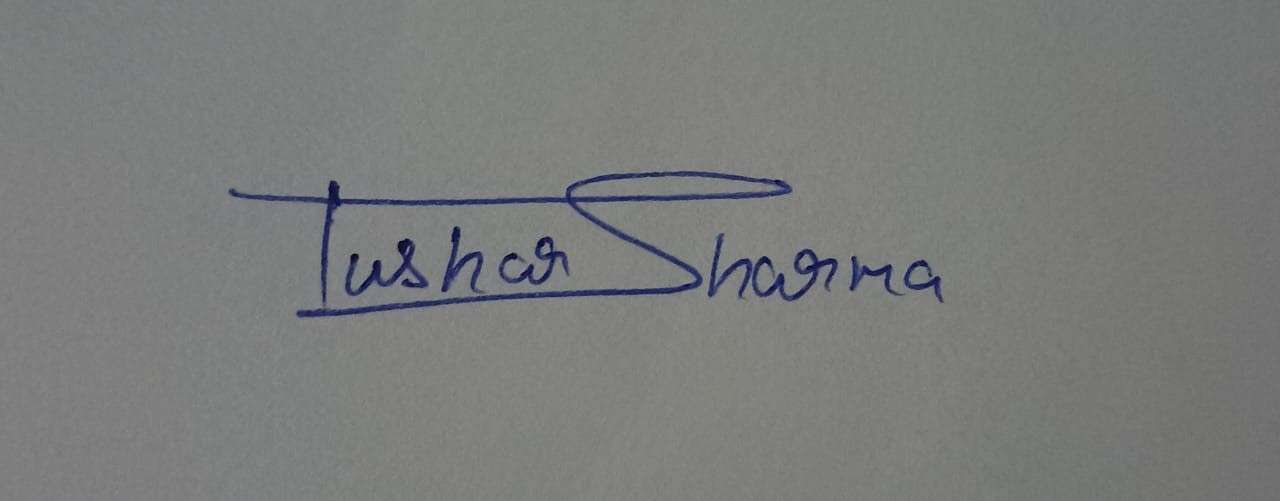 Tushar Sharma